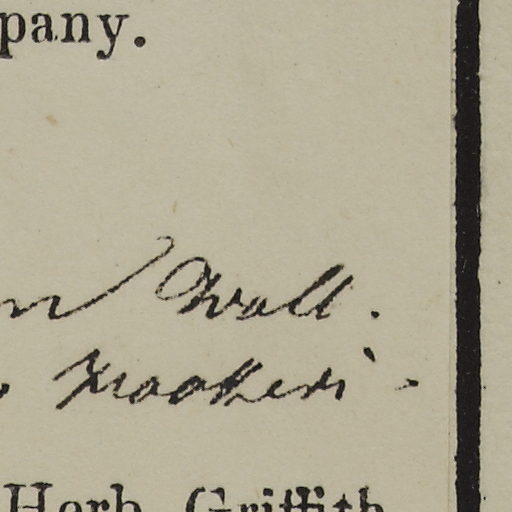 pany.
Wall.
Hookeri.
Herb. Griffith